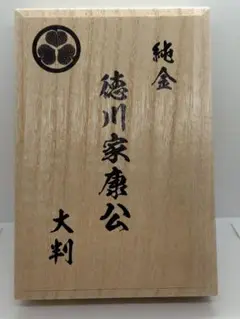 純金
徳川家康公
大判